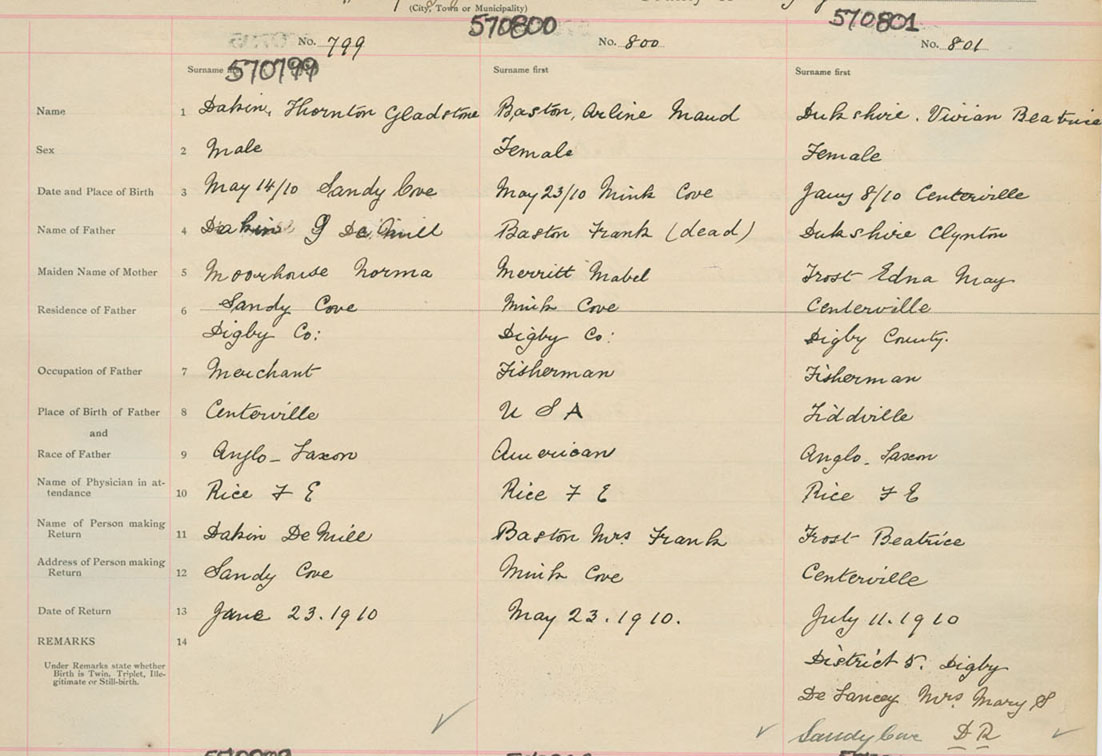 (City, Town or Municipality)
570800
570801
No. 799
No. 800
No. 801
Surname first
570799
Surname first
Surname first
Name 1 Dakin, Thornton Gladstone Baston, Arline Maud Dukshire. Vivian Beatrice
Sex 2 Male Female Female
Date and Place of Birth 3 May 14/10 Sandy Cove May 23/10 Mink Cove Jany 8/10 Centerville
Name of Father 4 Dakin G De Mill Baston Frank (dead) Dukshire Clynton
Maiden Name of Mother 5 Moorhouse Norma Merritt Mabel Frost Edna May
Residence of Father 6 Sandy Cove Mink Cove Centerville
Digby Co: Digby Co: Digby County.
Occupation of Father 7 Merchant Fisherman Fisherman
Place of Birth of Father 8 Centerville U S A Tiddville
and
Race of Father 9 Anglo-Saxon American Anglo-Saxon
Name of Physician in at-
tendance 10 Rice F E Rice F E Rice F E
Name of Person making
Return 11 Dakin De Mill Baston Mrs Frank Frost Beatrice
Address of Person making
Return 12 Sandy Cove Mink Cove Centerville
Date of Return 13 June 23.1910 May 23.1910. July 11.1910
REMARKS 14
Under Remarks state whether
Birth is Twin, Triplet, Ille-
gitimate or Still-birth.
District 5. Digby
De Lancey Mrs Mary S
Sandy Cove D R